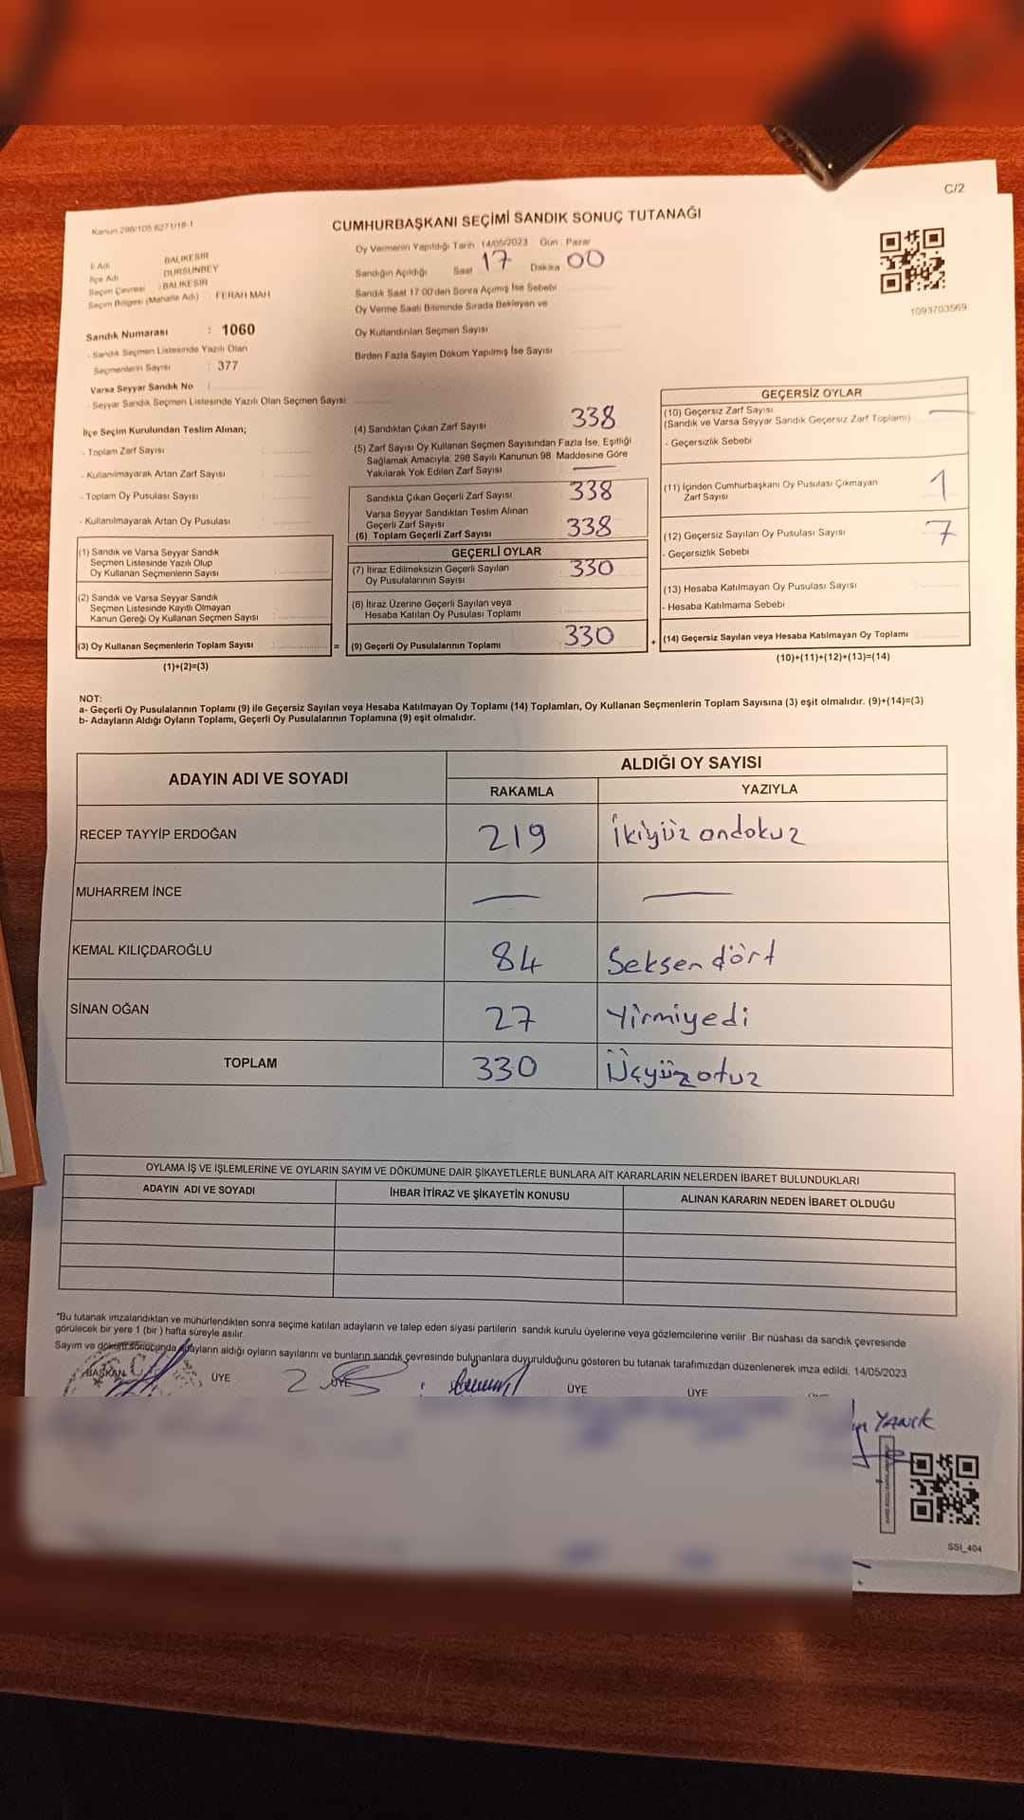 C/2
Kanun 298/105 6271/18-1
CUMHURBAŞKANI SEÇİMİ SANDIK SONUÇ TUTANAĞI
Oy Vermenin Yapıldığı Tarih 14/05/2023 Gün: Pazar
İl Adı BALIKESİR
İlçe Adı DURSUNBEY
Seçim Çevresi : BALIKESİR
Seçim Bölgesi (Mahalle Adı) FERAH MAH
Sandığın Açıldığı Saat 17 Dakika 00
Sandık Saat 17:00'den Sonra Açılmış İse Sebebi
Oy Verme Saati Bitiminde Sırada Bekleyen ve
Oy Kullandırılan Seçmen Sayısı
Birden Fazla Sayım Döküm Yapılmış İse Sayısı
1093703569
Sandık Numarası : 1060
- Sandık Seçmen Listesinde Yazılı Olan
Seçmenlerin Sayısı : 377
Varsa Seyyar Sandık No :
- Seyyar Sandık Seçmen Listesinde Yazılı Olan Seçmen Sayısı:
İlçe Seçim Kurulundan Teslim Alınan;
- Toplam Zarf Sayısı
- Kullanılmayarak Artan Zarf Sayısı
- Toplam Oy Pusulası Sayısı
- Kullanılmayarak Artan Oy Pusulası
(1) Sandık ve Varsa Seyyar Sandık
Seçmen Listesinde Yazılı Olup
Oy Kullanan Seçmenlerin Sayısı
(2) Sandık ve Varsa Seyyar Sandık
Seçmen Listesinde Kayıtlı Olmayan
Kanun Gereği Oy Kullanan Seçmen Sayısı
(3) Oy Kullanan Seçmenlerin Toplam Sayısı
(1)+(2)=(3)
(4) Sandıktan Çıkan Zarf Sayısı 338
(5) Zarf Sayısı Oy Kullanan Seçmen Sayısından Fazla İse, Eşitliği
Sağlamak Amacıyla, 298 Sayılı Kanunun 98. Maddesine Göre
Yakılarak Yok Edilen Zarf Sayısı —
Sandıkta Çıkan Geçerli Zarf Sayısı 338
Varsa Seyyar Sandıktan Teslim Alınan
Geçerli Zarf Sayısı
(6) Toplam Geçerli Zarf Sayısı 338
GEÇERLİ OYLAR
(7) İtiraz Edilmeksizin Geçerli Sayılan
Oy Pusulalarının Sayısı 330
(8) İtiraz Üzerine Geçerli Sayılan veya
Hesaba Katılan Oy Pusulası Toplamı
= (9) Geçerli Oy Pusulalarının Toplamı 330
GEÇERSİZ OYLAR
(10) Geçersiz Zarf Sayısı
(Sandık ve Varsa Seyyar Sandık Geçersiz Zarf Toplamı) —
- Geçersizlik Sebebi
(11) İçinden Cumhurbaşkanı Oy Pusulası Çıkmayan
Zarf Sayısı 1
(12) Geçersiz Sayılan Oy Pusulası Sayısı 7
- Geçersizlik Sebebi
(13) Hesaba Katılmayan Oy Pusulası Sayısı
- Hesaba Katılmama Sebebi
+ (14) Geçersiz Sayılan veya Hesaba Katılmayan Oy Toplamı
(10)+(11)+(12)+(13)=(14)
NOT:
a- Geçerli Oy Pusulalarının Toplamı (9) ile Geçersiz Sayılan veya Hesaba Katılmayan Oy Toplamı (14) Toplamları, Oy Kullanan Seçmenlerin Toplam Sayısına (3) eşit olmalıdır. (9)+(14)=(3)
b- Adayların Aldığı Oyların Toplamı, Geçerli Oy Pusulalarının Toplamına (9) eşit olmalıdır.
ADAYIN ADI VE SOYADI ALDIĞI OY SAYISI
RAKAMLA YAZIYLA
RECEP TAYYİP ERDOĞAN 219 İkiyüz ondokuz
MUHARREM İNCE — —
KEMAL KILIÇDAROĞLU 84 Seksen dört
SİNAN OĞAN 27 Yirmiyedi
TOPLAM 330 Üçyüzotuz
OYLAMA İŞ VE İŞLEMLERİNE VE OYLARIN SAYIM VE DÖKÜMÜNE DAİR ŞİKAYETLERLE BUNLARA AİT KARARLARIN NELERDEN İBARET BULUNDUKLARI
ADAYIN ADI VE SOYADI İHBAR İTİRAZ VE ŞİKAYETİN KONUSU ALINAN KARARIN NEDEN İBARET OLDUĞU
*Bu tutanak imzalandıktan ve mühürlendikten sonra seçime katılan adayların ve talep eden siyasi partilerin sandık kurulu üyelerine veya gözlemcilerine verilir. Bir nüshası da sandık çevresinde
görülecek bir yere 1 (bir) hafta süreyle asılır.
Sayım ve döküm sonucunda adayların aldığı oyların sayılarını ve bunların sandık çevresinde bulunanlara duyurulduğunu gösteren bu tutanak tarafımızdan düzenlenerek imza edildi. 14/05/2023
BAŞKAN ÜYE ÜYE ÜYE ÜYE
YANIK
SSI_404